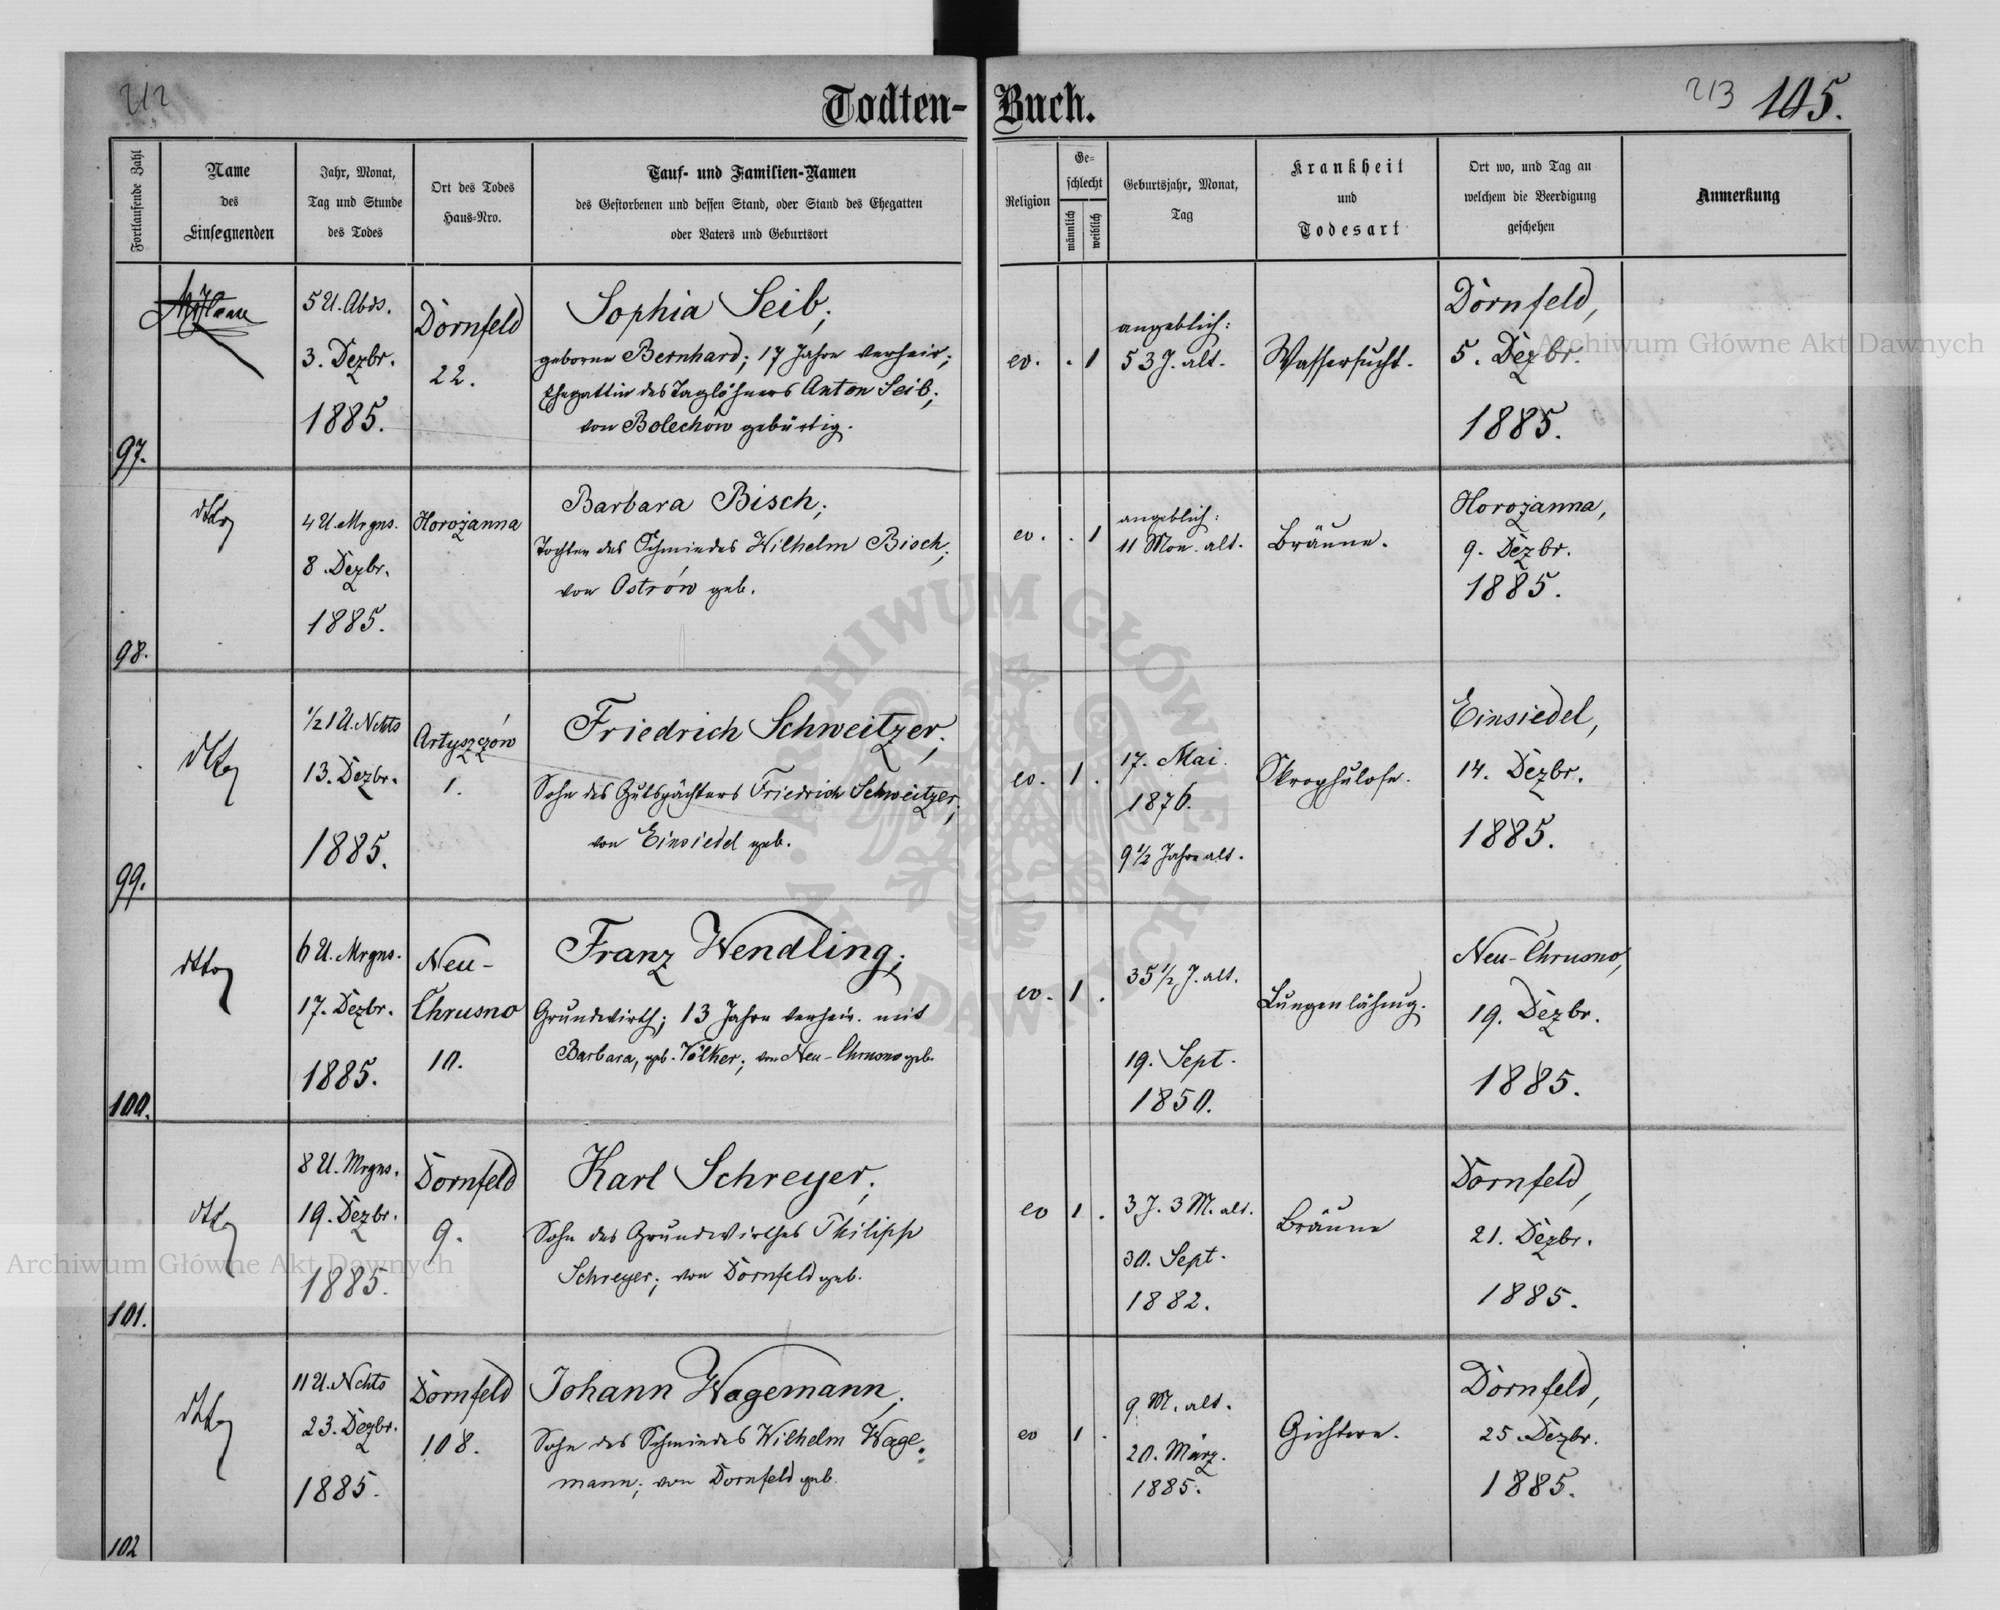 212
Todten-Buch.
213 105.
Fortlaufende Zahl
Name
des
Einsegnenden
Jahr, Monat,
Tag und Stunde
des Todes
Ort des Todes
Haus-Nro.
Tauf- und Familien-Namen
des Gestorbenen und dessen Stand, oder Stand des Ehegatten
oder Vaters und Geburtsort
Religion
Ge-
schlecht
männlich
weiblich
Geburtsjahr, Monat,
Tag
Krankheit
und
Todesart
Ort wo, und Tag an
welchem die Beerdigung
geschehen
Anmerkung
97.
5 U. Abds.
3. Dezbr.
1885.
Dornfeld
22.
Sophia Seib;
geborne Bernhard; 17 Jahre verheir;
Ehegattin des Taglöhners Anton Seib;
von Bolechów gebürtig.
ev.
. 1
angeblich:
53 J. alt.
Wassersucht.
Dornfeld,
5. Dezbr.
1885.
98.
dtto
4 U. Mrgns.
8. Dezbr.
1885.
Horożanna
Barbara Bisch;
Tochter des Schmiedes Wilhelm Bisch;
von Ostrów geb.
ev.
. 1
angeblich:
11 Mon. alt.
Bräune.
Horożanna,
9. Dezbr.
1885.
99.
dtto
½1 U. Nchts
13. Dezbr.
1885.
Artyszczów
1.
Friedrich Schweitzer;
Sohn des Gutspächters Friedrich Schweitzer;
von Einsiedel geb.
ev.
1 .
17. Mai
1876.
9½ Jahre alt.
Skrophulose.
Einsiedel,
14. Dezbr.
1885.
100.
dtto
6 U. Mrgns.
17. Dezbr.
1885.
Neu-
Chrusno
10.
Franz Wendling;
Grundwirth; 13 Jahre verheir. mit
Barbara, geb. Völker; von Neu-Chrusno geb.
ev.
1 .
35½ J. alt.
19. Sept.
1850.
Lungenlähmg.
Neu-Chrusno,
19. Dezbr.
1885.
101.
dtto
8 U. Mrgns.
19. Dezbr.
1885.
Dornfeld
9.
Karl Schreyer;
Sohn des Grundwirthes Philipp
Schreyer; von Dornfeld geb.
ev
1 .
3 J. 3 M. alt.
30. Sept.
1882.
Bräune
Dornfeld,
21. Dezbr.
1885.
102
dtto
11 U. Nchts
23. Dezbr.
1885.
Dornfeld
108.
Johann Wagemann;
Sohn des Schmiedes Wilhelm Wage-
mann; von Dornfeld geb.
ev
1 .
9 M. alt.
20. März.
1885.
Gichtern.
Dornfeld,
25. Dezbr.
1885.
Archiwum Główne Akt Dawnych
Archiwum Główne Akt Dawnych
ARCHIWUM GŁÓWNE AKT DAWNYCH